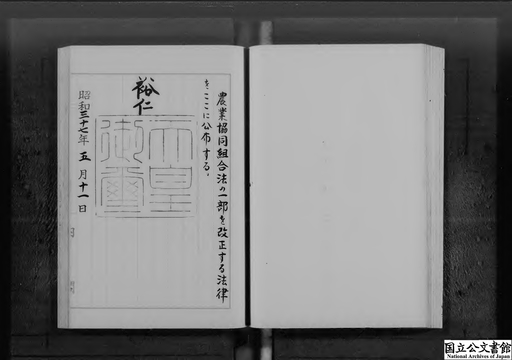 農業協同組合法の一部を改正する法律
をここに公布する。
裕仁
天皇御璽
昭和三十七年五月十一日
国立公文書館
National Archives of Japan